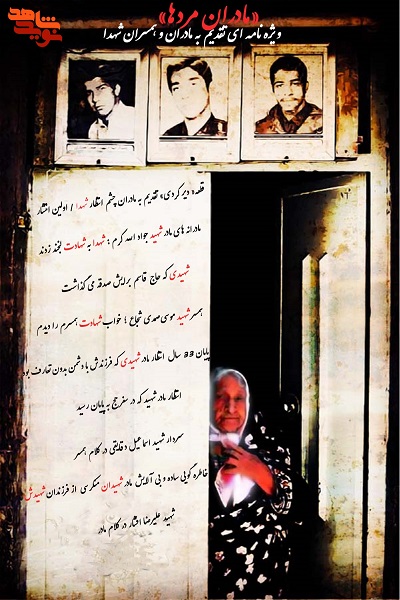 نوید شاهد
«مادران مردها»
ویژه نامه ای تقدیم به مادران و همسران شهدا
قطعه «دیر کردی» تقدیم به مادران چشم انتظار شهدا / اولین افتخار
مادرانه های مادر شهید جواد الله کرم: شهدا به شهادت لبخند زدند
شهیدی که حاج قاسم برایش صدقه می گذاشت
همسر شهید موسی صمدی شجاع: خواب شهادت همسرم را دیدم
پایان 33 سال انتظار مادر شهیدی که فرزندش با دشمن بدون تعارف بود
انتظار مادر شهید که در سفر حج به پایان رسید
سردار شهید اسماعیل دقایقی در کلام همسر
خاطره گویی ساده و بی آلایش مادر شهیدان عسکری از فرزندان شهیدش
شهید علیرضا افشار در کلام مادر